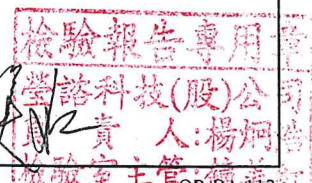 檢驗報告專用章
瑩諮科技(股)公司
負責人:楊炯
檢驗室主管: